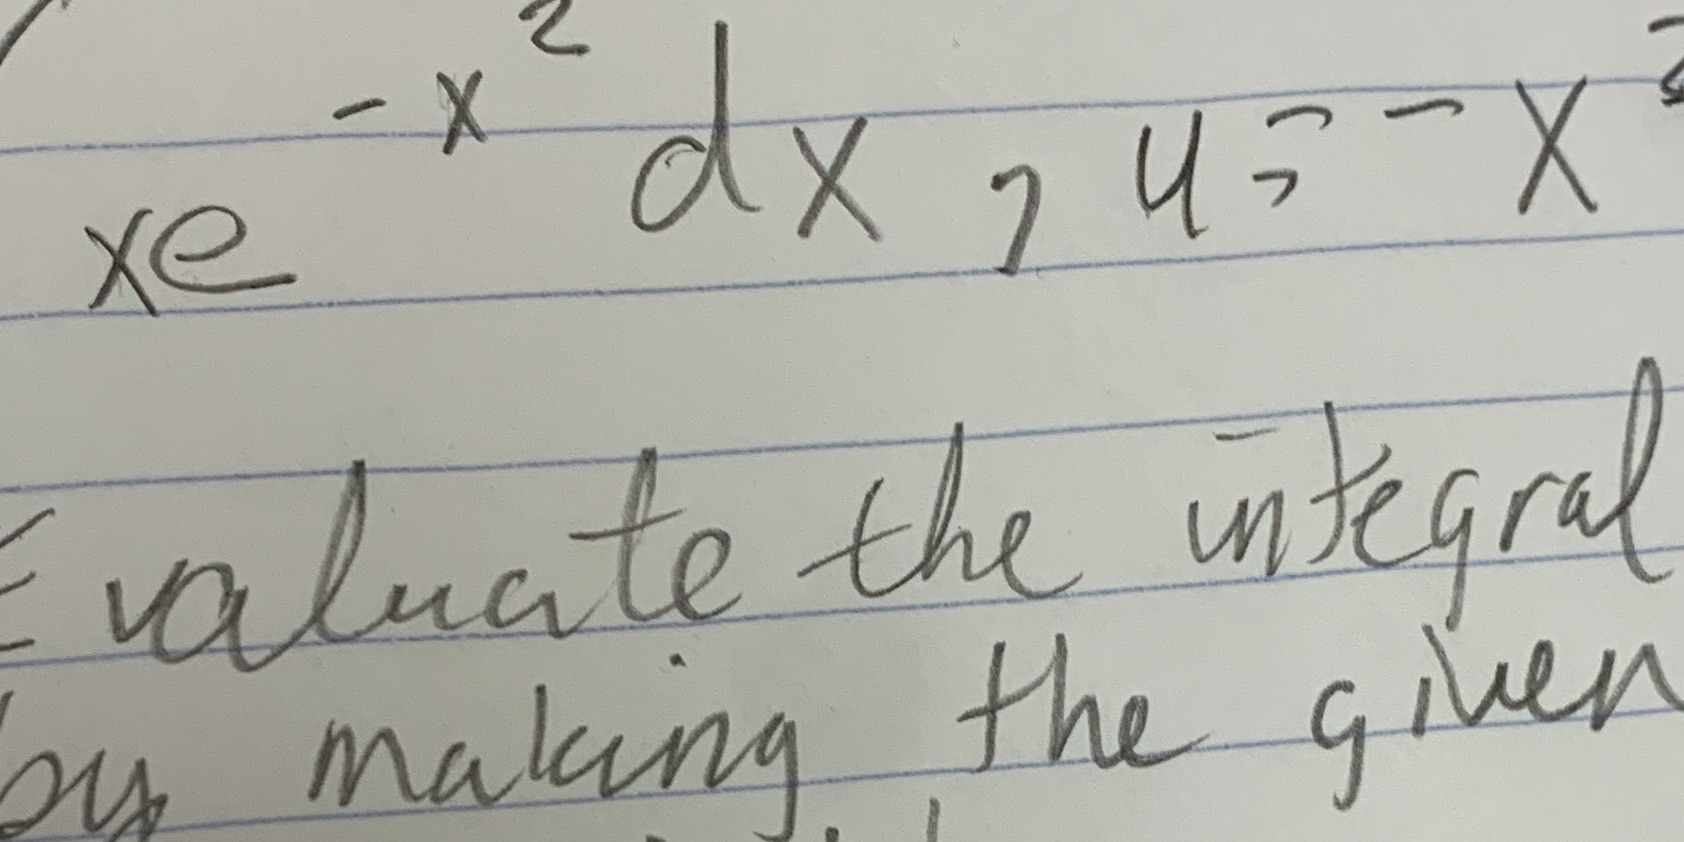 xe^{-x^2} dx, u = -x^2
Evaluate the integral
by making the given